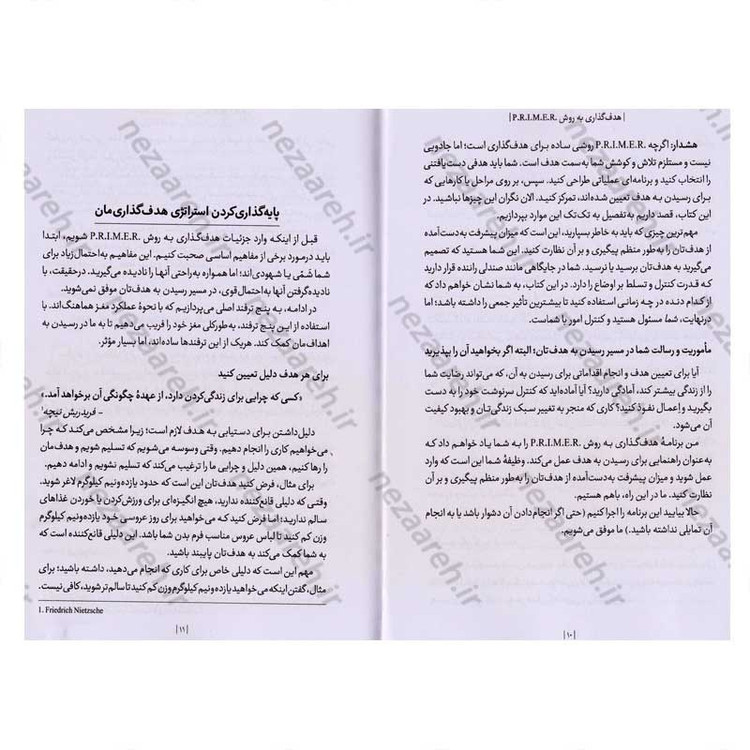 | هدف‌گذاری به روش P.R.I.M.E.R. |
هشدار: اگرچه P.R.I.M.E.R. روشی ساده برای هدف‌گذاری است؛ اما جادویی
نیست و مستلزم تلاش و کوشش شما به‌سمت هدف است. شما باید هدفی دست‌یافتنی
را انتخاب کنید و برنامه‌ای عملیاتی طراحی کنید. سپس، بر روی مراحل یا کارهایی که
برای رسیدن به هدف تعیین شده‌اند، تمرکز کنید. الان نگران این چیزها نباشید. در
این کتاب، قصد داریم به‌تفصیل به تک‌تک این موارد بپردازیم.
مهم‌ترین چیزی که باید به خاطر بسپارید، این است که میزان پیشرفت به‌دست‌آمده
از هدف‌تان را به‌طور منظم پیگیری و بر آن نظارت کنید. این شما هستید که تصمیم
می‌گیرید به هدف‌تان برسید یا نرسید. شما در جایگاهی مانند صندلی راننده قرار دارید
که قدرت کنترل و تسلط بر اوضاع را دارد. در این کتاب، به شما نشان خواهم داد که
از کدام دنده در چه زمانی استفاده کنید تا بیشترین تأثیر جمعی را داشته باشد؛ اما
درنهایت، شما مسئول هستید و کنترل امور با شماست.
مأموریت و رسالت شما در مسیر رسیدن به هدف‌تان؛ البته اگر بخواهید آن را بپذیرید
آیا برای تعیین هدف و انجام اقداماتی برای رسیدن به آن، که می‌تواند رضایت شما
را از زندگی بیشتر کند، آمادگی دارید؟ آیا آماده‌اید که کنترل سرنوشت خود را به دست
بگیرید و اِعمال نفوذ کنید؟ کاری که منجر به تغییر سبک زندگی‌تان و بهبود کیفیت
آن می‌شود.
من برنامهٔ هدف‌گذاری به روش P.R.I.M.E.R را به شما یاد خواهم داد که
به‌عنوان راهنمایی برای رسیدن به هدف عمل می‌کند. وظیفهٔ شما این است که وارد
عمل شوید و میزان پیشرفت به‌دست‌آمده از هدف‌تان را به‌طور منظم پیگیری و بر آن
نظارت کنید. ما در این راه، باهم هستیم.
حالا بیایید این برنامه را اجرا کنیم (حتی اگر انجام‌دادن آن دشوار باشد یا به انجام
آن تمایلی نداشته باشید.) ما موفق می‌شویم.
| ۱۰ |
پایه‌گذاری‌کردن استراتژی هدف‌گذاری‌مان
قبل از اینکه وارد جزئیات هدف‌گذاری به روش P.R.I.M.E.R شویم، ابتدا
باید درمورد برخی از مفاهیم اساسی صحبت کنیم. این مفاهیم به‌احتمال زیاد برای
شما ضمّی یا شهودی‌اند؛ اما همواره به‌راحتی آنها را نادیده می‌گیرید. درحقیقت، با
نادیده‌گرفتن آنها به‌احتمال‌قوی، در مسیر رسیدن به هدف‌تان موفق نمی‌شوید.
در ادامه، به پنج ترفند اصلی می‌پردازیم که با نحوهٔ عملکرد مغز هماهنگ‌اند. با
استفاده از این پنج ترفند، به‌طورکلی مغز خود را فریب می‌دهیم تا به ما در رسیدن به
اهداف‌مان کمک کند. هریک از این ترفندها ساده‌اند، اما بسیار مؤثر.
برای هر هدف دلیل تعیین کنید
«کسی که چرایی برای زندگی‌کردن دارد، از عهدهٔ چگونگی آن برخواهد آمد.»
– فریدریش نیچه¹
دلیل‌داشتن برای دستیابی به هدف لازم است؛ زیرا مشخص می‌کند که چرا
می‌خواهیم کاری را انجام دهیم. وقتی وسوسه می‌شویم که تسلیم شویم و هدف‌مان
را رها کنیم، همین دلیل و چرایی ما را ترغیب می‌کند که تسلیم نشویم و ادامه دهیم.
برای مثال، فرض کنید هدف‌تان این است که حدود یازده‌ونیم کیلوگرم لاغر شوید.
وقتی که دلیلی قانع‌کننده ندارید، هیچ انگیزه‌ای برای ورزش‌کردن یا خوردن غذاهای
سالم ندارید؛ اما فرض کنید که می‌خواهید برای روز عروسی خود یازده‌ونیم کیلوگرم
وزن کم کنید تا لباس عروس مناسب فرم بدن شما باشد. این دلیلی قانع‌کننده است که
به شما کمک می‌کند به هدف‌تان پایبند باشید.
مهم این است که دلیلی خاص برای کاری که انجام می‌دهید، داشته باشید؛ برای
مثال، گفتن اینکه می‌خواهید یازده‌ونیم کیلوگرم وزن کم کنید تا سالم‌تر شوید، کافی نیست.
1. Friedrich Nietzsche
| ۱۱ |
nezaareh.ir